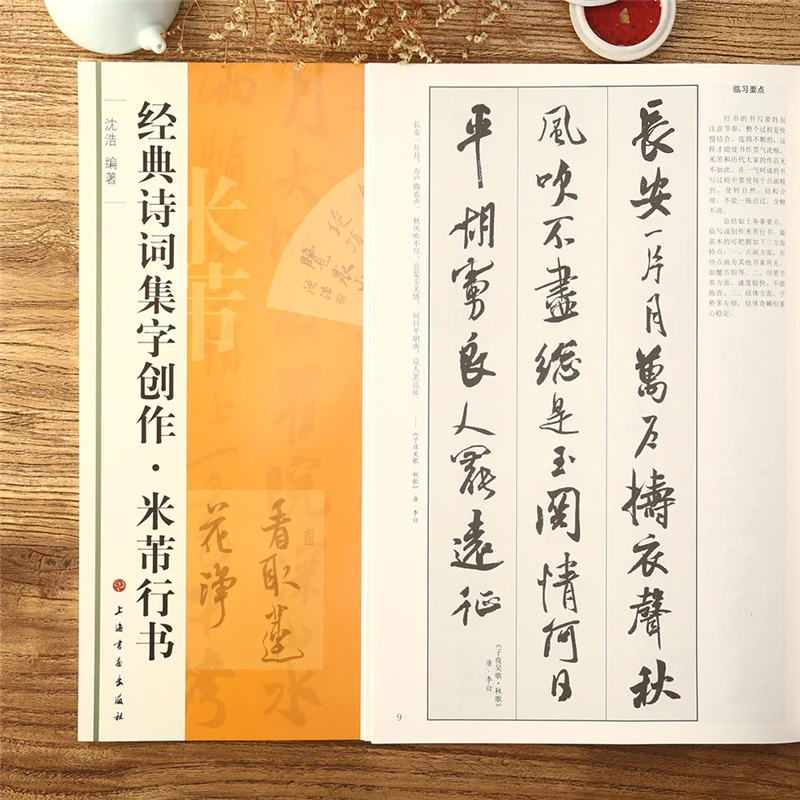 经典诗词集字创作·米芾行书
沈浩 编著
上海书画出版社
米芾
绝顶
览众山
沈浩
看取莲
花净
临习要点
行书的书写要特别
注意节奏，整个过程是快
慢结合、连绵不断的，这
样才能使书作贯气流畅，
米芾和历代大家的作品无
不如此。在一气呵成的书
写过程中要使每个点画精
到、使转自然、结构合
理，不能一拖而过，含糊
不清。
总结如上各条要点，
临写或创作米芾行书，最
基本的可把握如下三方面
特点：一、点画方面，有
些点画为其他书家所无，
如蟹爪钩等。二、用笔节
奏方面，速度较快，不能
拖沓。三、结体方面，字
势多左倾，结体奇崛但重
心稳定。
長安一片月萬戶擣衣聲秋
風吹不盡總是玉関情何日
平胡虜良人罷遠征
《子夜吴歌·秋歌》
唐·李白
长安一片月，万户捣衣声。秋风吹不尽，总是玉关情。何日平胡虏，良人罢远征。
——《子夜吴歌·秋歌》 唐 李白
9